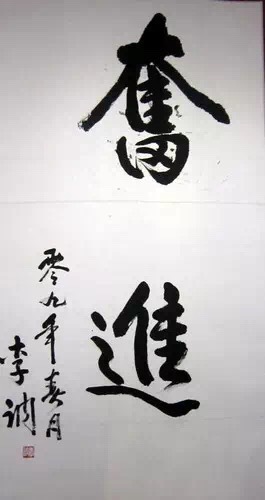 奮進
零九年春月
李潤